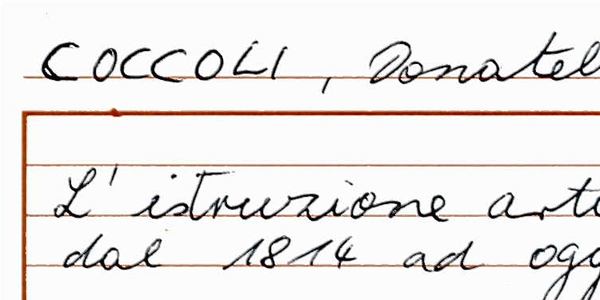 COCCOLI, Donatel
L'istruzione arti
dal 1814 ad ogg